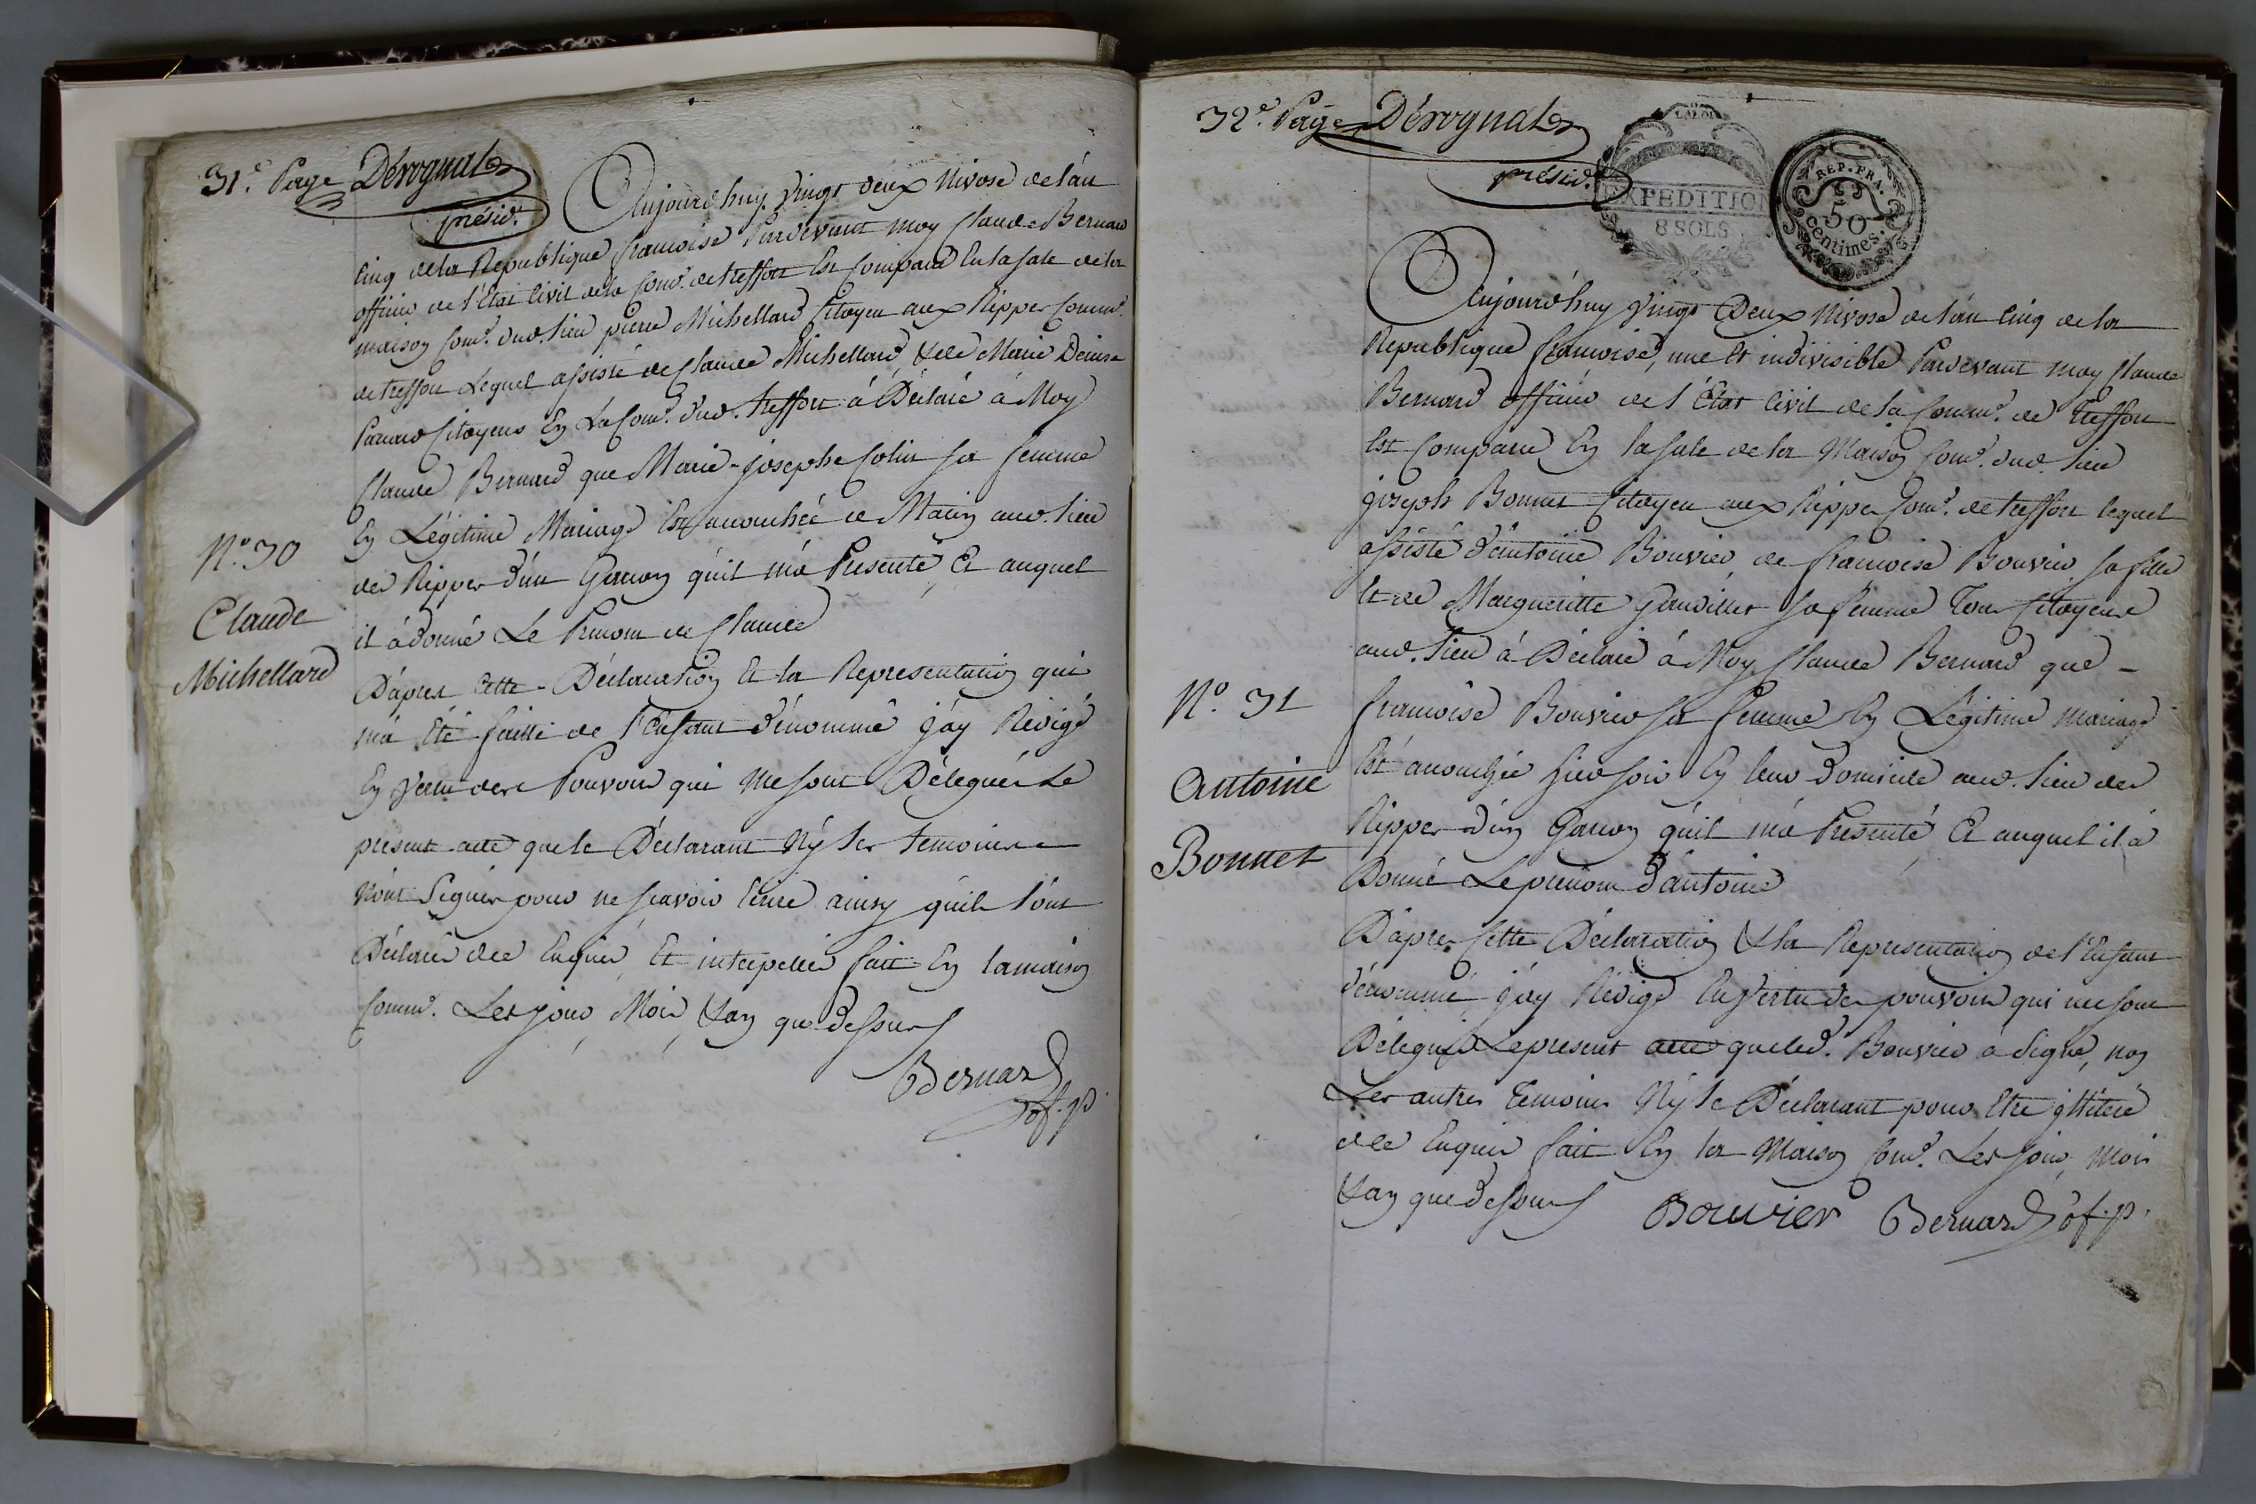 31.e Page Dérognat
présid.t
Aujourdhuy vingt deux Nivose de l'an
Cinq de la Republique francoise Pardevant moy Claude Bernard
officier de l'Etat Civil de la Com.e de treffort Est Comparu En la sale de la
maison Com.e dud. lieu pierre Michellard Citoyen aux Rippes Comm.e
de treffort Lequel assisté de Claude Michellard, & de Marie Denise
Citoyens En La Com.e dud. treffort à Déclaré à Moy
Claude Bernard que Marie-josephe Colin sa femme
En Légitime Mariage Est accouchée ce Matin aud. lieu
des Rippes d'un Garcon qu'il m'à Presenté, Et auquel
N.o 30
il à donné Le Prenom de Claude
Claude
Michellard
D'apres Cette Déclaration Et la Representation qui
m'à Eté faitte de l'Enfant dénommé j'ay Redigé
En Vertu des Pouvoirs qui Me sont Délegués Le
présent acte que le Déclarant Ny les temoins
N'ont Signés pour ne scavoir Ecrire ainsy qu'ils l'ont
Déclaré de ce Enquis, Et interpellés fait En la maison
Comm.e Les jour, Mois, & an que dessus
Bernard
of. p.
32.e Page Dérognat
présid.t
LA LOI
EXPEDITION
8 SOLS
REP. FRA.
50
centimes.
Aujourdhuy vingt Deux Nivose de l'an Cinq de la
Republique francoise, une Et indivisible Pardevant moy Claude
Bernard officier de l'Etat Civil de la Comm.e de treffort
Est Comparu En la sale de la Maison Com.e dud. lieu
joseph Bonnet Citoyen aux Rippes Com.e de treffort lequel
assisté d'antoine Bouvier de francoise Bouvier sa fille
Et de Margueritte sa femme Tous Citoyens
aud. lieu à Déclaré à Moy Claude Bernard que
N.o 31
francoise Bouvier sa femme En Légitime mariage
Est accouchée hier soir En leur Domicile aud. lieu des
Antoine
Rippes d'un Garcon qu'il m'à Presenté Et auquel il à
Bonnet
Donné Le prenom d'antoine
D'apres Cette Déclaration & la Representation de l'Enfant
dénommé, j'ay Rédigé En Vertu des pouvoirs qui me sont
Délegués Le present acte que led. Bouvier à Signé, non
Les autres Temoins Ny le Déclarant pour Etre jllitéré
de ce Enquis fait En la Maison Com.e Les jour, mois
& an que dessus Bouvier Bernard of. p.